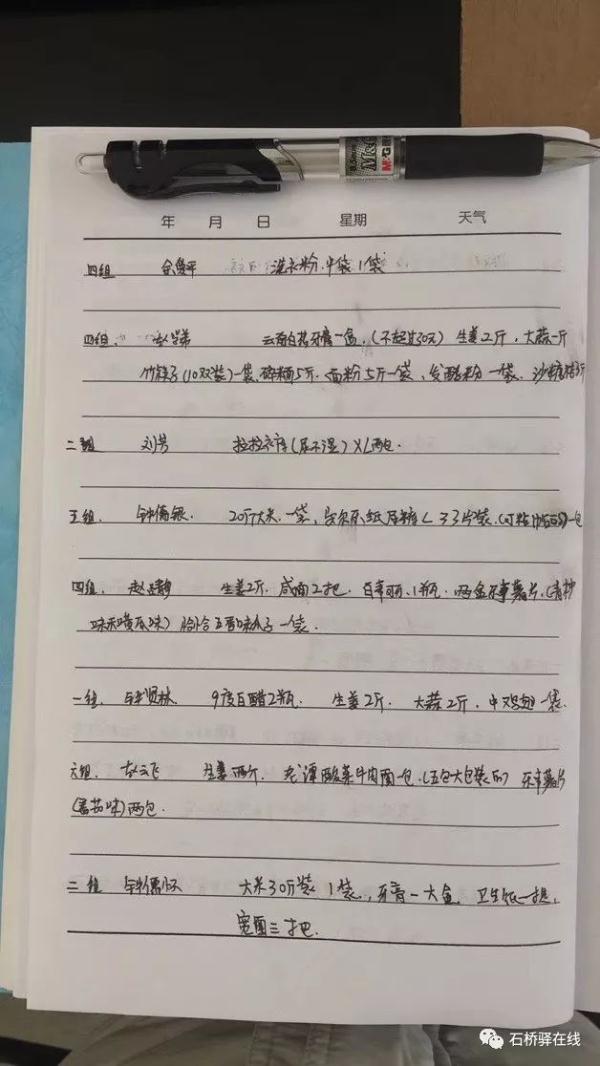 M&G
年 月 日 星期 天气
四组 洗衣粉.中袋1袋
四组. 云南白药牙膏一盒.(不超过30元) 生姜2斤,大蒜一斤
竹筷子(10双装)一袋. 5斤.面粉5斤一袋、发酵粉一袋.
二组 刘芳 拉拉裤(尿不湿)XL两包.
五组. 钟儒银. 20斤大米.一袋, 一包
四组. 生姜2斤.咸面2把.百事可 1瓶. 薯片.(青柠
味和黄瓜味)洽洽五香味瓜子一袋.
一组. 钟贤林. 9度白醋2瓶. 生姜2斤. 大蒜2斤,中鸡翅一袋.
六组. 赵云飞 生姜两斤.老潭酸菜牛肉面一包.(五包大包装的)乐事薯片
(番茄味)两包.
二组 钟儒怀 大米30斤装1袋.,牙膏一大盒.卫生纸一提,
宽面三把.
石桥驿在线